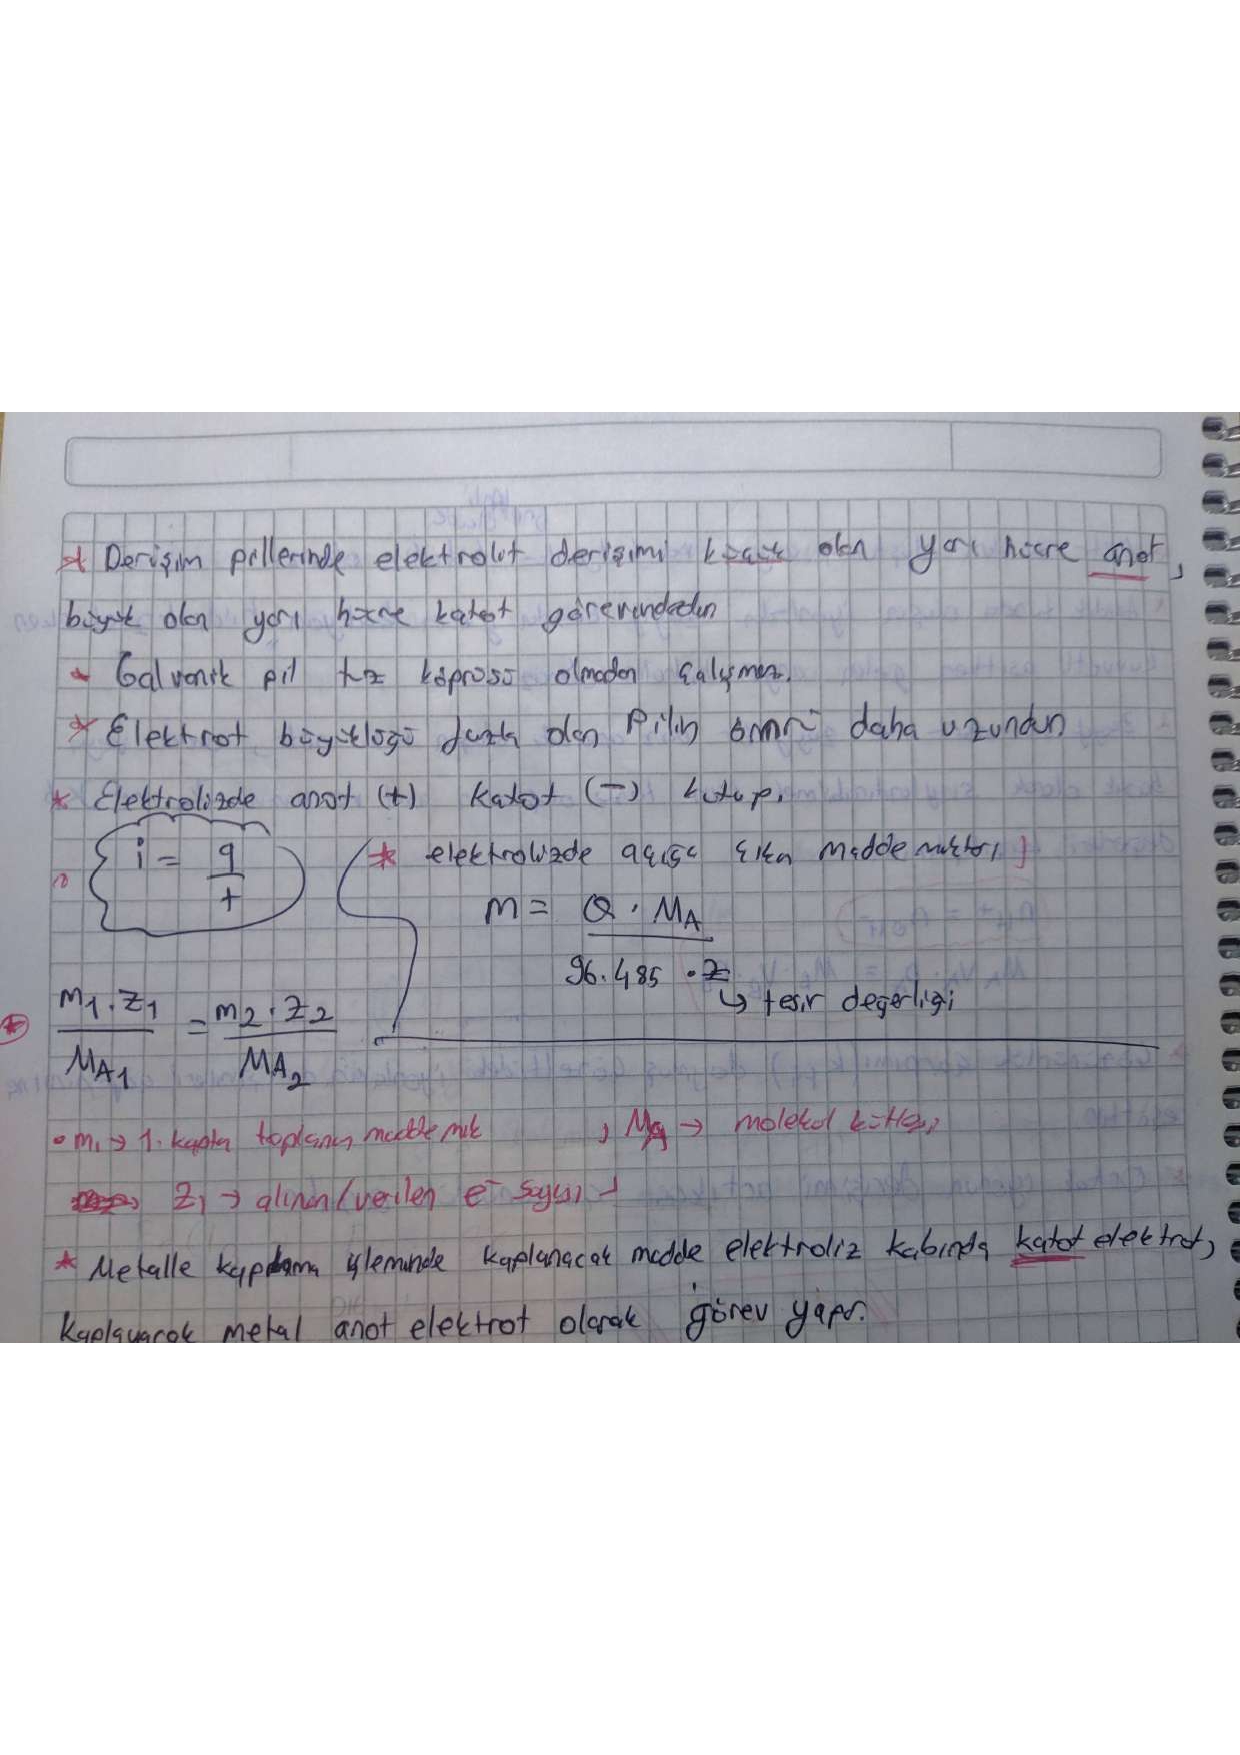 * Derişim pillerinde elektrolit derişimi küçük olan yarı hücre anot,
büyük olan yarı hücre katot görevindedir
* Galvanik pil tuz köprüsü olmadan çalışmaz.
* Elektrot büyüklüğü fazla olan Pilin ömrü daha uzundur
* Elektrolizde anot (+) katot (-) kutup.
i = q / t
* elektrolizde açığa çıkan madde miktarı
m = Q . MA / 96.485 . Z
↳ tesir değerliği
* m1 . Z1 / MA1 = m2 . Z2 / MA2
• m1 → 1. kapta toplanan madde mik , MA → molekül kütlesi
Z1 → alınan/verilen e- sayısı
* Metalle kaplama işleminde kaplanacak madde elektroliz kabında katot elektrot,
kaplayacak metal anot elektrot olarak görev yapar.